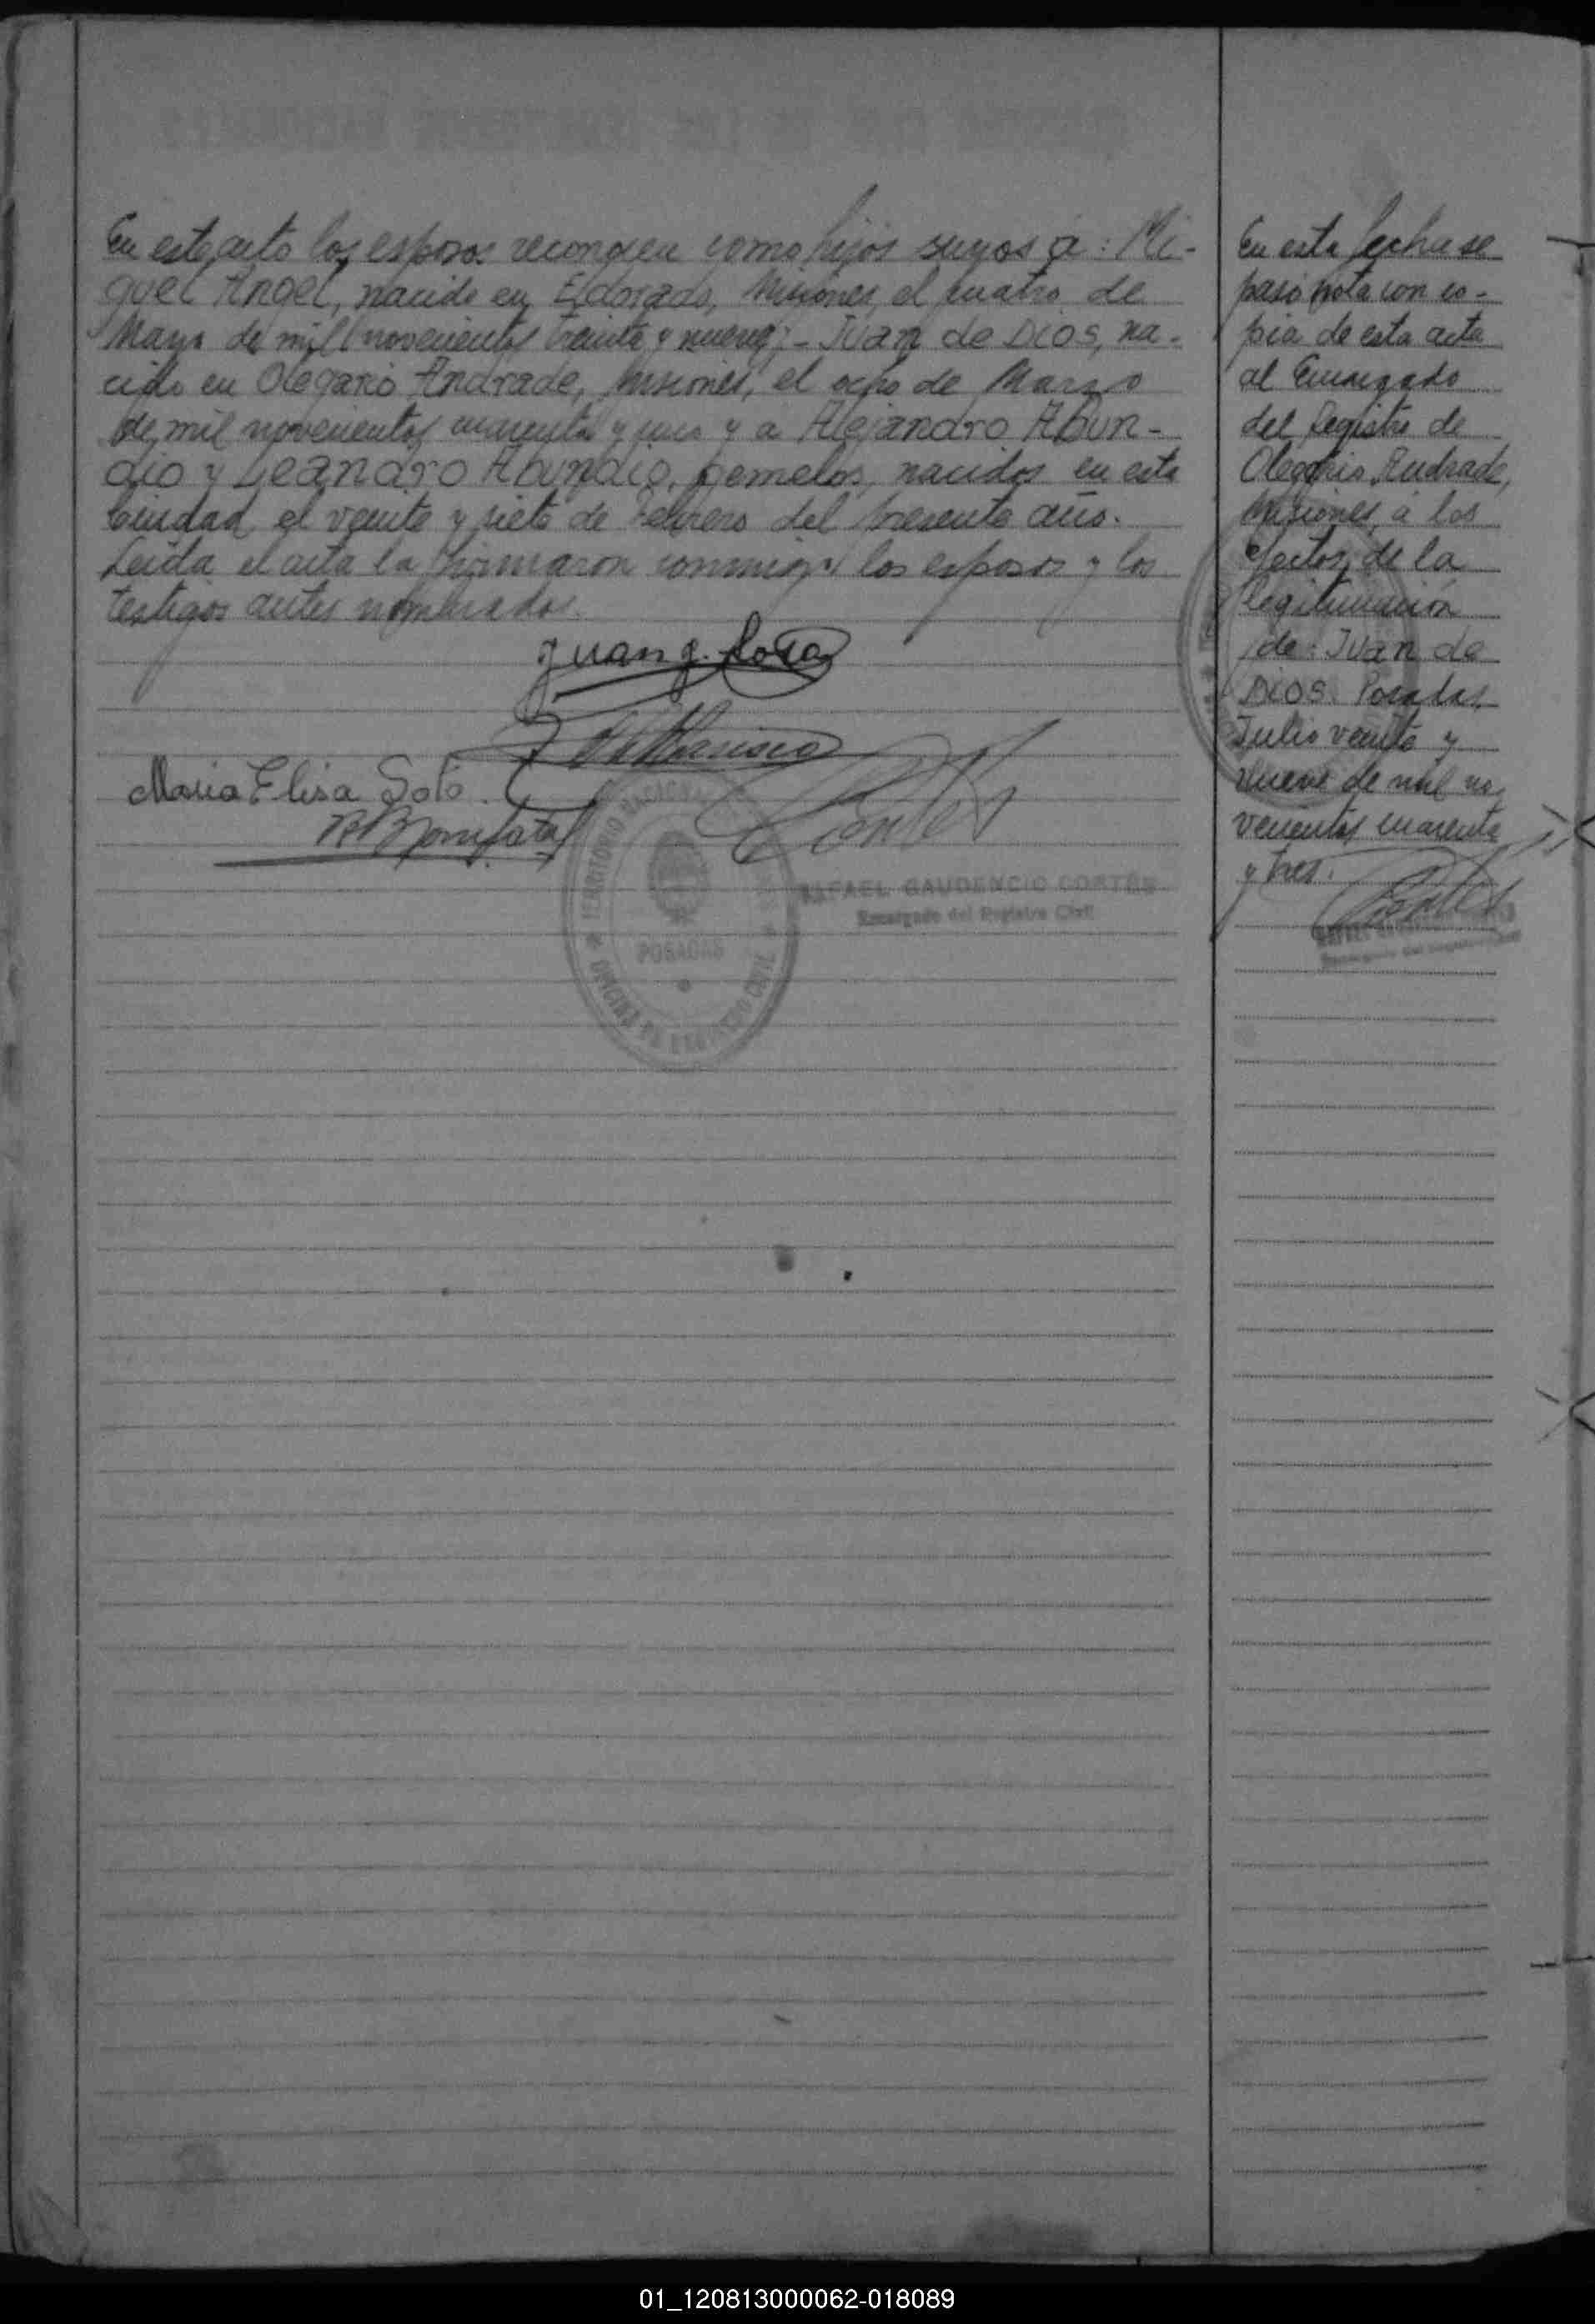 En este acto los esposos reconocen como hijos suyos a: Mi-
guel Angel, nacido en Eldorado, Misiones, el cuatro de
Mayo de mil novecientos treinta y nueve; - Juan de Dios, na-
cido en Olegario Andrade, Misiones, el ocho de Marzo
de mil novecientos cuarenta y uno y a Alejandro Abun-
dio y Leandro Abundio, gemelos, nacidos en esta
Ciudad el veinte y siete de Febrero del presente año.
Leida el acta la firmaron conmigo los esposos y los
testigos antes nombrados.
Juan
Maria Elisa Soto
Cortés
TERRITORIO NACIONAL
POSADAS
OFICINA DE REGISTRO CIVIL
RAFAEL GAUDENCIO CORTÉS
Encargado del Registro Civil
En esta fecha se
pasó nota con co-
pia de esta acta
al Encargado
del Registro de
Olegario Andrade,
Misiones, a los
efectos de la
legitimación
de: Juan de
Dios. Posadas,
Julio veinte y
nueve de mil no-
vecientos cuarenta
y tres.
Cortés
01_120813000062-018089